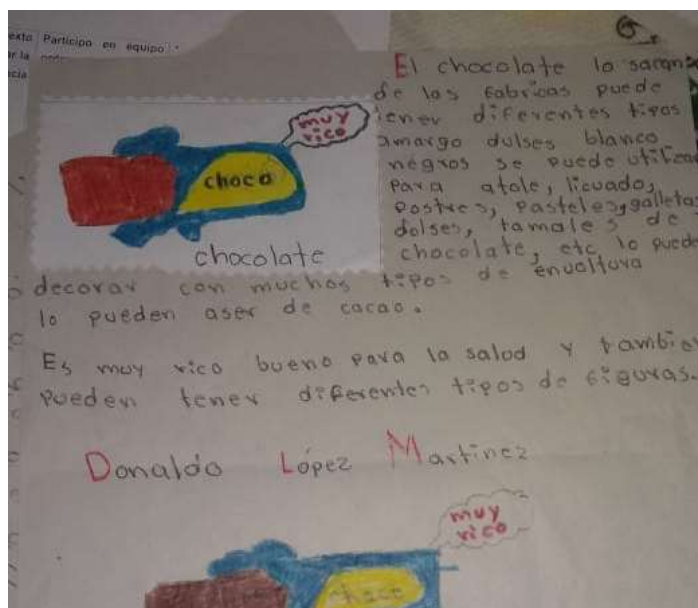 exto Participo en equipo
ar la
ncia
El chocolate lo sacan
de las fabricas puede
tener diferentes tipos
amargo dulses blanco
negros se puede utilizar
para atole, licuado,
postres, pasteles, galletas
dolses, tamales de
chocolate, etc lo puede
decorar con muchos tipos de envoltura
lo pueden aser de cacao.
muy
rico
choco
chocolate
Es muy rico bueno para la salud y tambien
pueden tener diferentes tipos de figuras.
Donaldo López Martinez
muy
rico
choco